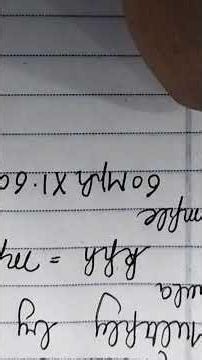 Multiply by
mula
kph = mp
mple
60Mph X1.60